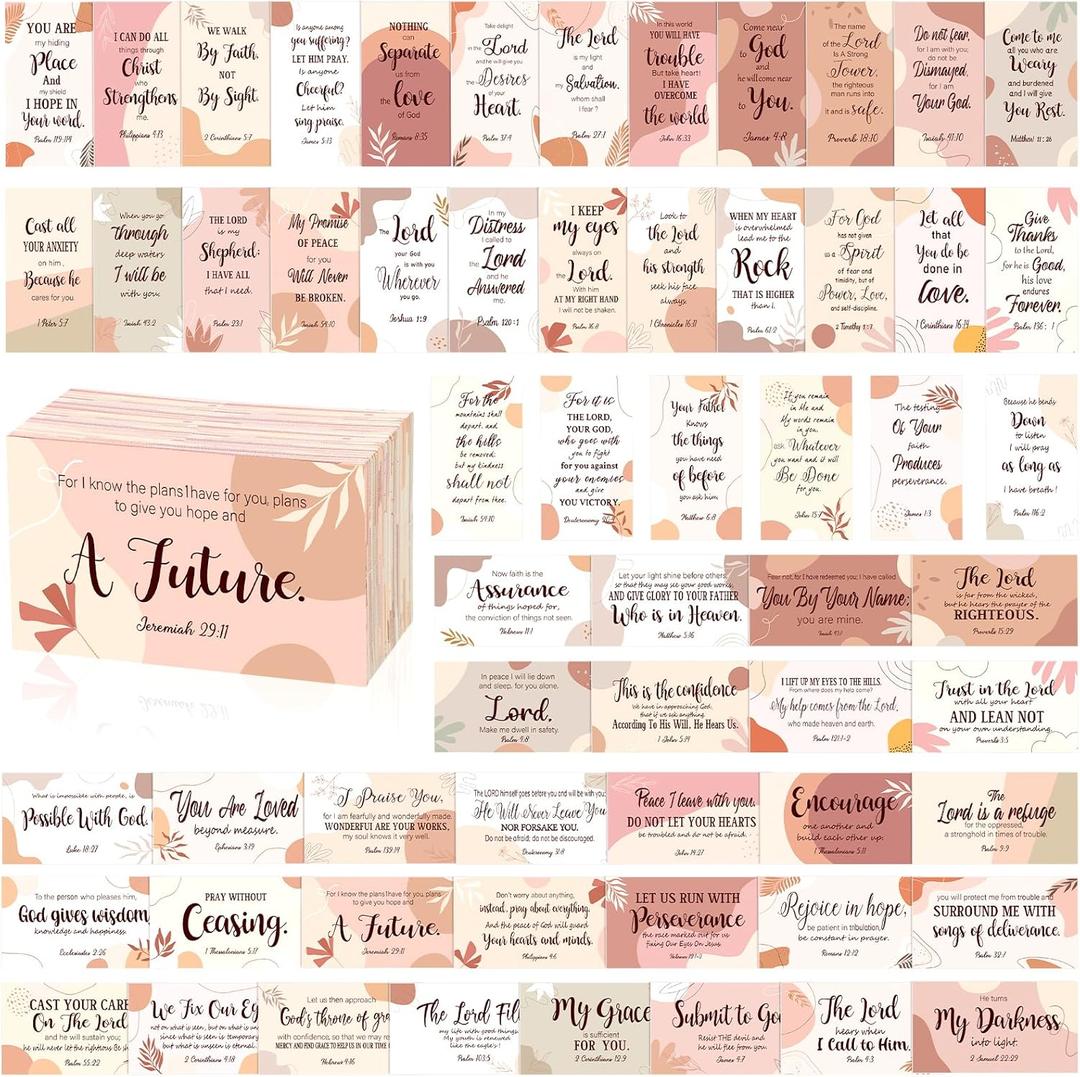 YOU ARE
my hiding
Place
And
my shield
I HOPE IN
Your word.
Psalm 119:114
I CAN DO ALL
things through
Christ
who
Strengthens
me.
Philippians 4:13
WE WALK
By Faith,
NOT
By Sight.
2 Corinthians 5:7
Is anyone among
you suffering?
LET HIM PRAY.
Is anyone
Cheerful?
Let him
sing praise.
James 5:13
NOTHING
can
Separate
us from
the love
of God
Romans 8:35
Take delight
in the Lord
and he will give you
the Desires
of your
Heart.
Psalm 37:4
The Lord
is my light
and my
Salvation,
whom shall
I fear?
Psalm 27:1
In this world
YOU WILL HAVE
trouble
But take heart!
I HAVE
OVERCOME
the world
John 16:33
Come near
to God
and
he will come near
to You.
James 4:8
The name
of the Lord
Is A Strong
Tower,
the righteous
man runs into
it and is safe.
Proverb 18:10
Do not fear,
for I am with you;
do not be
Dismayed,
for I am
Your God.
Isaiah 41:10
Come to me
all you who are
Weary
and burdened
and I will give
You Rest.
Matthew 11:28
Cast all
YOUR ANXIETY
on him,
Because he
cares for you.
1 Peter 5:7
When you go
Through
deep waters
I will be
with you.
Isaiah 43:2
THE LORD
is my
Shepherd;
I HAVE ALL
that I need.
Psalm 23:1
My Promise
OF PEACE
for you
Will Never
BE BROKEN.
Isaiah 54:10
The Lord
your God
is with you
Wherever
you go.
Joshua 1:9
In my
Distress
I called to
the Lord
and he
Answered
me.
Psalm 120:1
I KEEP
my eyes
always on
the Lord.
With him
AT MY RIGHT HAND
I will not be shaken.
Psalm 16:8
Look to
the Lord
and
his strength
seek his face
always.
1 Chronicles 16:11
WHEN MY HEART
is overwhelmed
lead me to the
Rock
THAT IS HIGHER
than I.
Psalm 61:2
For God
has not given
us a Spirit
of fear and
timidity, but of
Power, Love,
and self-discipline.
2 Timothy 1:7
Let all
that
You do be
done in
love.
1 Corinthians 16:14
Give
Thanks
to the Lord,
for he is Good,
his love
endures
Forever.
Psalm 136:1
For I know the plans I have for you, plans
to give you hope and
A Future.
Jeremiah 29:11
For the
mountains shall
depart, and
the hills
be removed;
but my kindness
shall not
depart from thee.
Isaiah 54:10
For it is
THE LORD,
YOUR GOD,
who goes with
you to fight
for you against
your enemies
and give
YOU VICTORY.
Deuteronomy
Your Father
Knows
the things
you have need
of before
you ask him
Matthew 6:8
If you remain
in Me and
My words remain
in you,
ask Whatever
you want and it will
Be Done
for you.
John 15:7
The testing
Of Your
faith
Produces
perseverance.
James 1:3
Because he bends
Down
to listen
I will pray
as long as
I have breath!
Psalm 116:2
Now faith is the
Assurance
of things hoped for,
the conviction of things not seen.
Hebrews 11:1
Let your light shine before others,
so that they may see your good works,
AND GIVE GLORY TO YOUR FATHER
Who is in Heaven.
Matthew 5:16
Fear not, for I have redeemed you; I have called
You By Your Name;
you are mine.
Isaiah 43:1
The Lord
is far from the wicked,
but he hears the prayer of the
RIGHTEOUS.
Proverbs 15:29
In peace I will lie down
and sleep, for you alone,
Lord,
Make me dwell in safety.
Psalm 4:8
This is the confidence
We have in approaching God:
that if we ask anything
According To His Will, He Hears Us.
1 John 5:14
I LIFT UP MY EYES TO THE HILLS.
From where does my help come?
My help comes from the Lord,
who made heaven and earth.
Psalm 121:1-2
Trust in the Lord
with all your heart
AND LEAN NOT
on your own understanding.
Proverbs 3:5
What is impossible with people, is
Possible With God.
Luke 18:27
You Are Loved
beyond measure.
Ephesians 3:19
I Praise You,
for I am fearfully and wonderfully made.
WONDERFUL ARE YOUR WORKS,
my soul knows it very well.
Psalm 139:14
The LORD himself goes before you and will be with you;
He Will Never Leave You
NOR FORSAKE YOU.
Do not be afraid; do not be discouraged.
Deuteronomy 31:8
Peace I leave with you.
DO NOT LET YOUR HEARTS
be troubled and do not be afraid.
John 14:27
Encourage
one another and
build each other up.
1 Thessalonians 5:11
The
Lord is a refuge
for the oppressed,
a stronghold in times of trouble.
Psalm 9:9
To the person who pleases him,
God gives wisdom,
knowledge and happiness.
Ecclesiastes 2:26
PRAY WITHOUT
Ceasing.
1 Thessalonians 5:17
For I know the plans I have for you, plans
to give you hope and
A Future.
Jeremiah 29:11
Don't worry about anything,
instead, pray about everything.
And the peace of God will guard
Your hearts and minds.
Philippians 4:6
LET US RUN WITH
Perseverance
the race marked out for us
Fixing Our Eyes On Jesus.
Hebrews 12:1-2
Rejoice in hope,
be patient in tribulation,
be constant in prayer.
Romans 12:12
you will protect me from trouble and
SURROUND ME WITH
songs of deliverance.
Psalm 32:7
CAST YOUR CARE
On The Lord
and he will sustain you;
he will never let the righteous Be sh
Psalm 55:22
We Fix Our Ey
not on what is seen, but on what is un
since what is seen is temporary
but what is unseen is eternal.
2 Corinthians 4:18
Let us then approach
God's throne of gra
with confidence, so that we may re
MERCY AND FIND GRACE TO HELP US IN OUR TIME O
Hebrews 4:16
The Lord Fil
my life with good things.
My youth is renewed
like the eagle's!
Psalm 103:5
My Grace
is sufficient
FOR YOU.
2 Corinthians 12:9
Submit to Go
Resist THE devil and
he will flee you.
James 4:7
The Lord
hears when
I Call to Him.
Psalm 4:3
He turns
My Darkness
into light.
2 Samuel 22:29